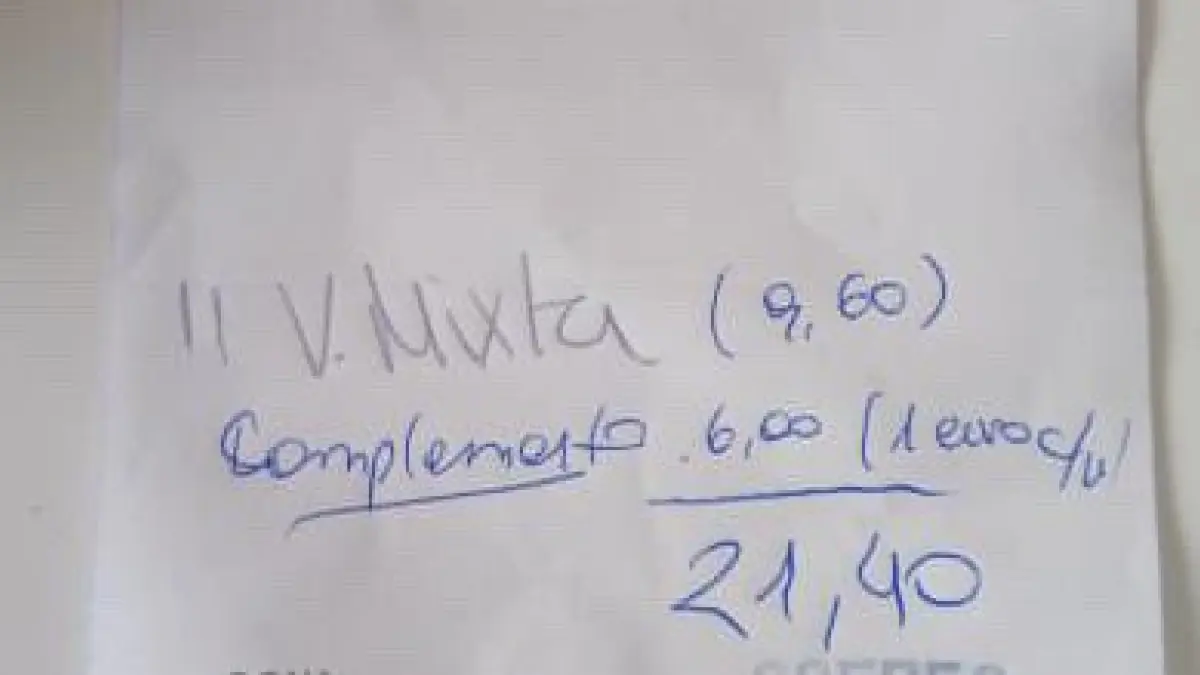 11 V. Mixta (9,60)
Complemento . 6,00 (1 euro c/u)
21,40